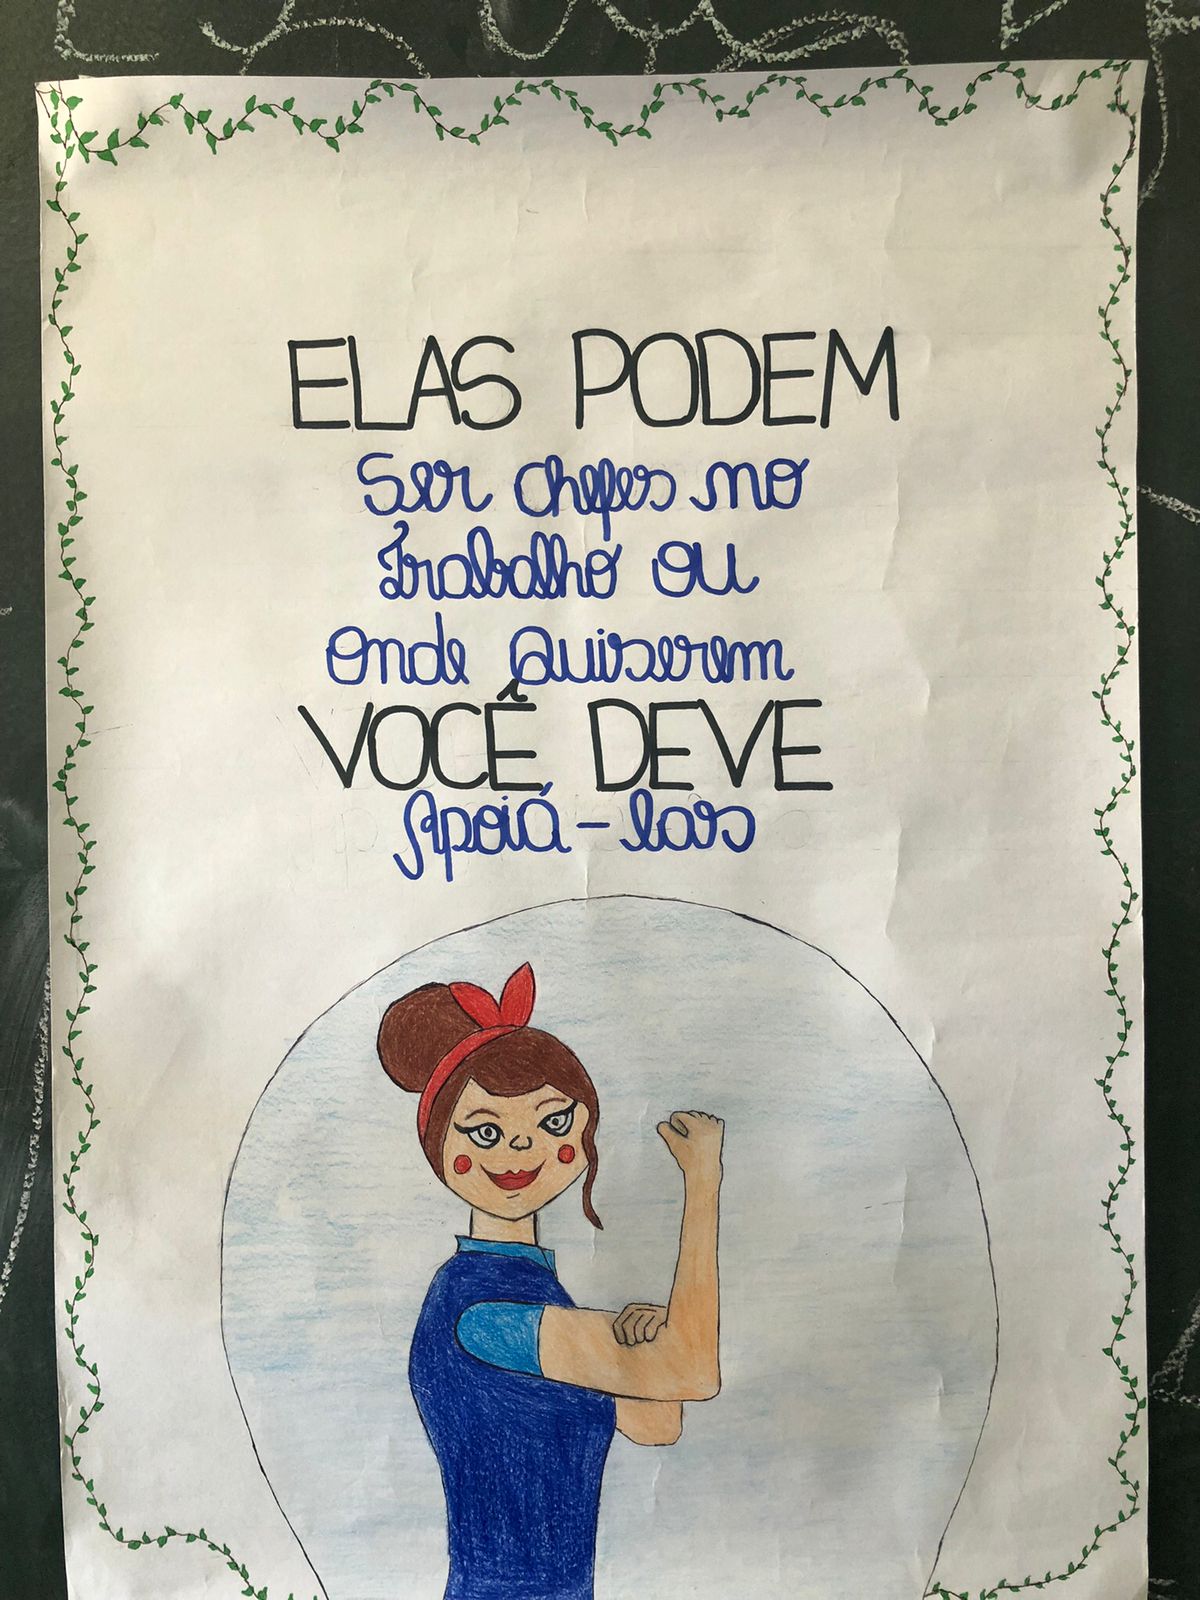 ELAS PODEM
Ser chefes no
Trabalho ou
Onde Quiserem
VOCÊ DEVE
Apoiá-las